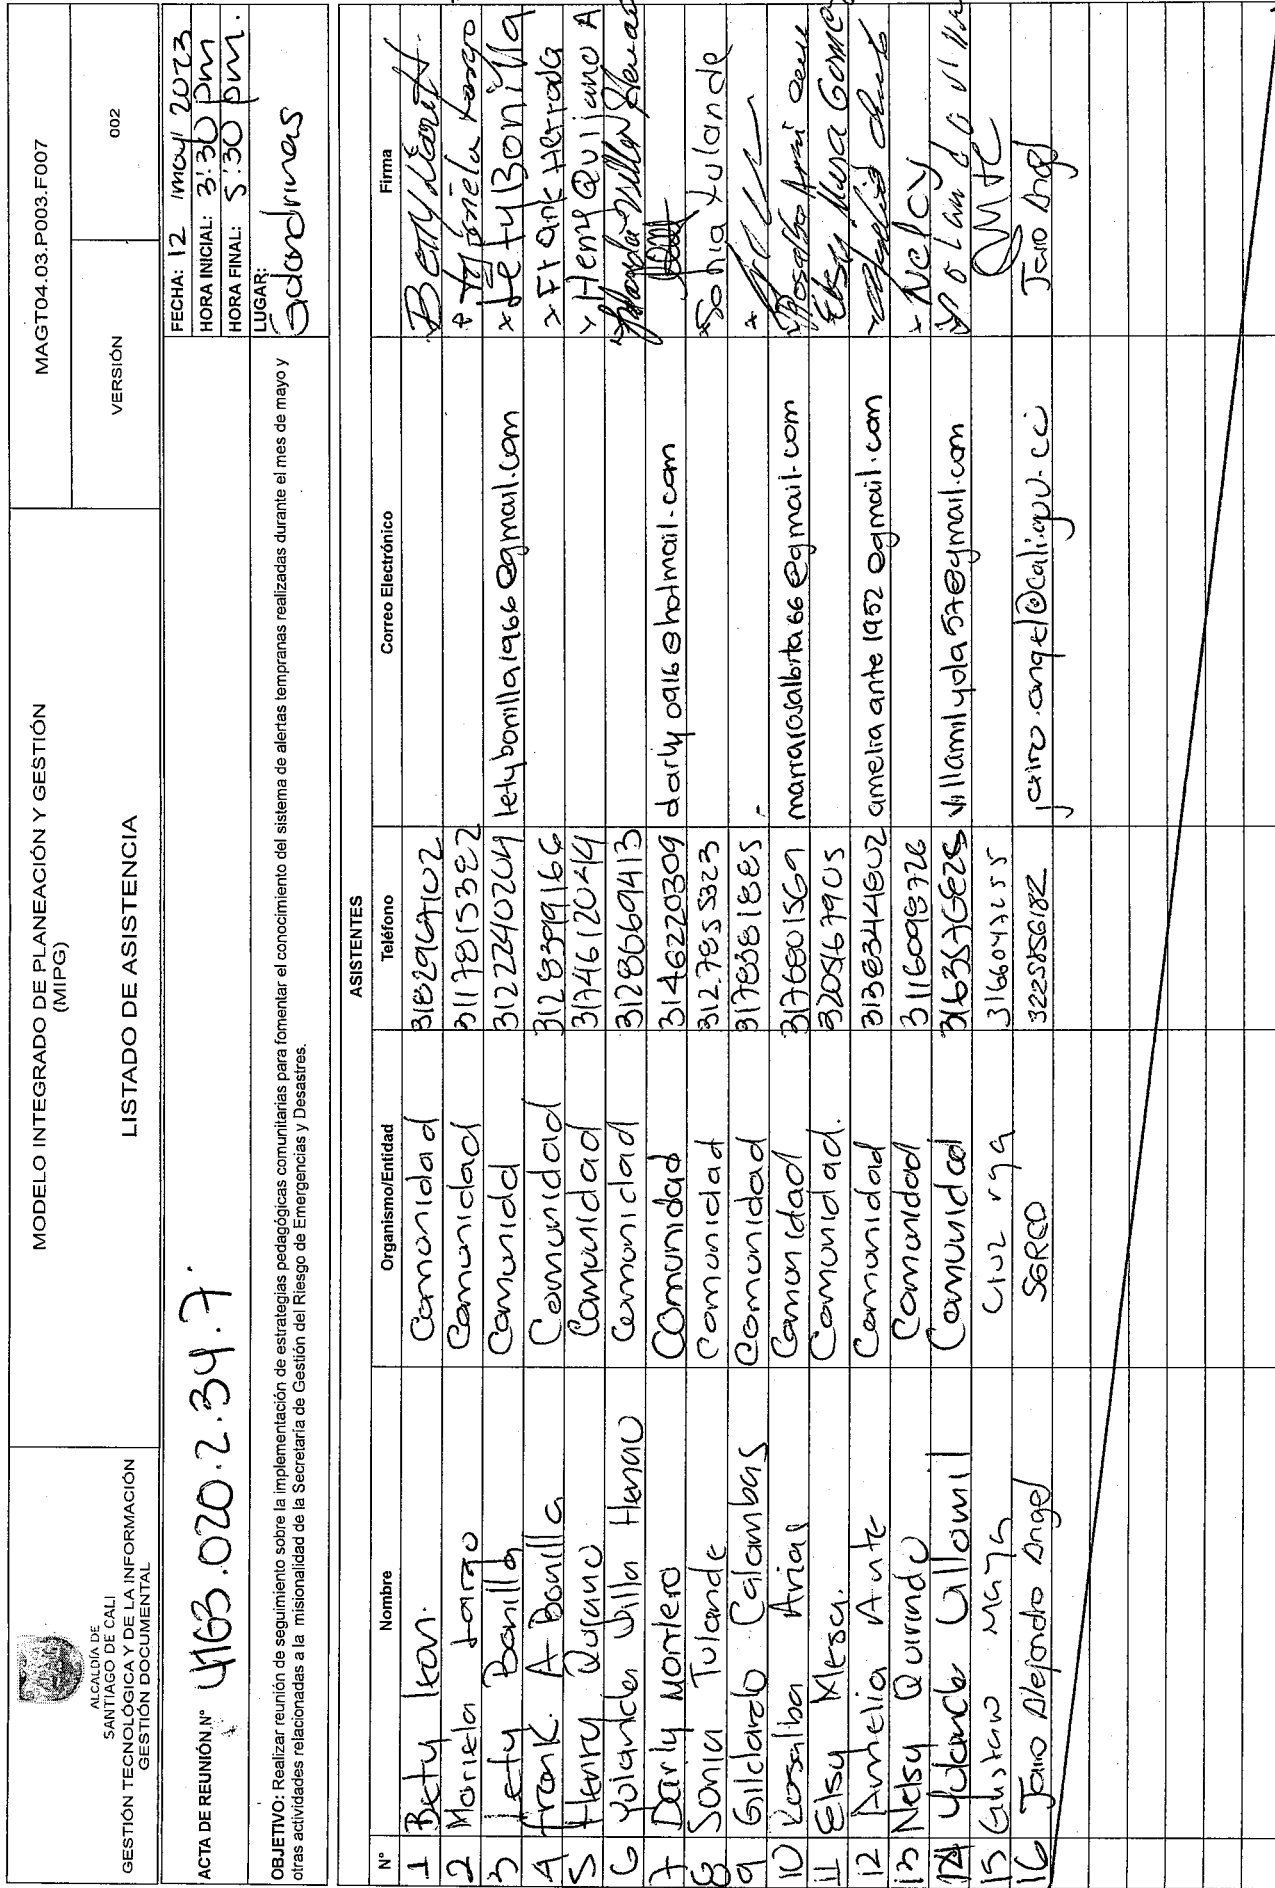 ALCALDÍA DE
SANTIAGO DE CALI
GESTIÓN TECNOLÓGICA Y DE LA INFORMACIÓN
GESTIÓN DOCUMENTAL
MODELO INTEGRADO DE PLANEACIÓN Y GESTIÓN
(MIPG)
LISTADO DE ASISTENCIA
MAGT04.03.P003.F007
VERSIÓN 002
ACTA DE REUNIÓN.N° 4163.020.2.34.7.
FECHA: 12 may 2023
HORA INICIAL: 3:30 pm
HORA FINAL: 5:30 pm.
LUGAR:
OBJETIVO: Realizar reunión de seguimiento sobre la implementación de estrategias pedagógicas comunitarias para fomentar el conocimiento del sistema de alertas tempranas realizadas durante el mes de mayo y
otras actividades relacionadas a la misionalidad de la Secretaría de Gestión del Riesgo de Emergencias y Desastres.
ASISTENTES
N° Nombre Organismo/Entidad Teléfono Correo Electrónico Firma
1 Bety Leon. Comunidad 3182967102
2 Mariela Largo Comunidad 3117815382 Mariela Largo
3 Lety Bonilla Comunidd 3122240204 letybonilla1966@gmail.com x Lety Bonilla
4 Frank. A Bonilla Comunidad 3128399166 x Frank Herrada
5 Henry Quijano Comunidad 3174612044 x Henry Quijano A
6 Yolanda Villa Henao Comunidad 3128669413
7 Darly Montero Comunidad 3146220309 darly0916@hotmail.com
8 Sonia Tulande Comunidad 312.7855323 Sonia Tulande
9 Gildardo Calambas Comunidad 3178381885
10 Rosalba Arias Comunidad 3176801569 mariarosalbita66@gmail.com
11 Elsy Mesa. Comunidad. 3205167905 Elsy Mesa Gomez
12 Amelia Ante Comunidad 3138344802 amelia ante 1952 @gmail.com
13 Nelsy Quirindo Comunidad 3116098726 x Nelcy
14 Yolanda Villamil Comunidad 3163576828 Villamilyola57@gmail.com Yolanda Villa
15 Gustavo Maya Cruz roja 3166047255
16 Jairo Alejandro Angel SGRED 3225856182 jairo.angel@cali.gov.co Jairo Angel